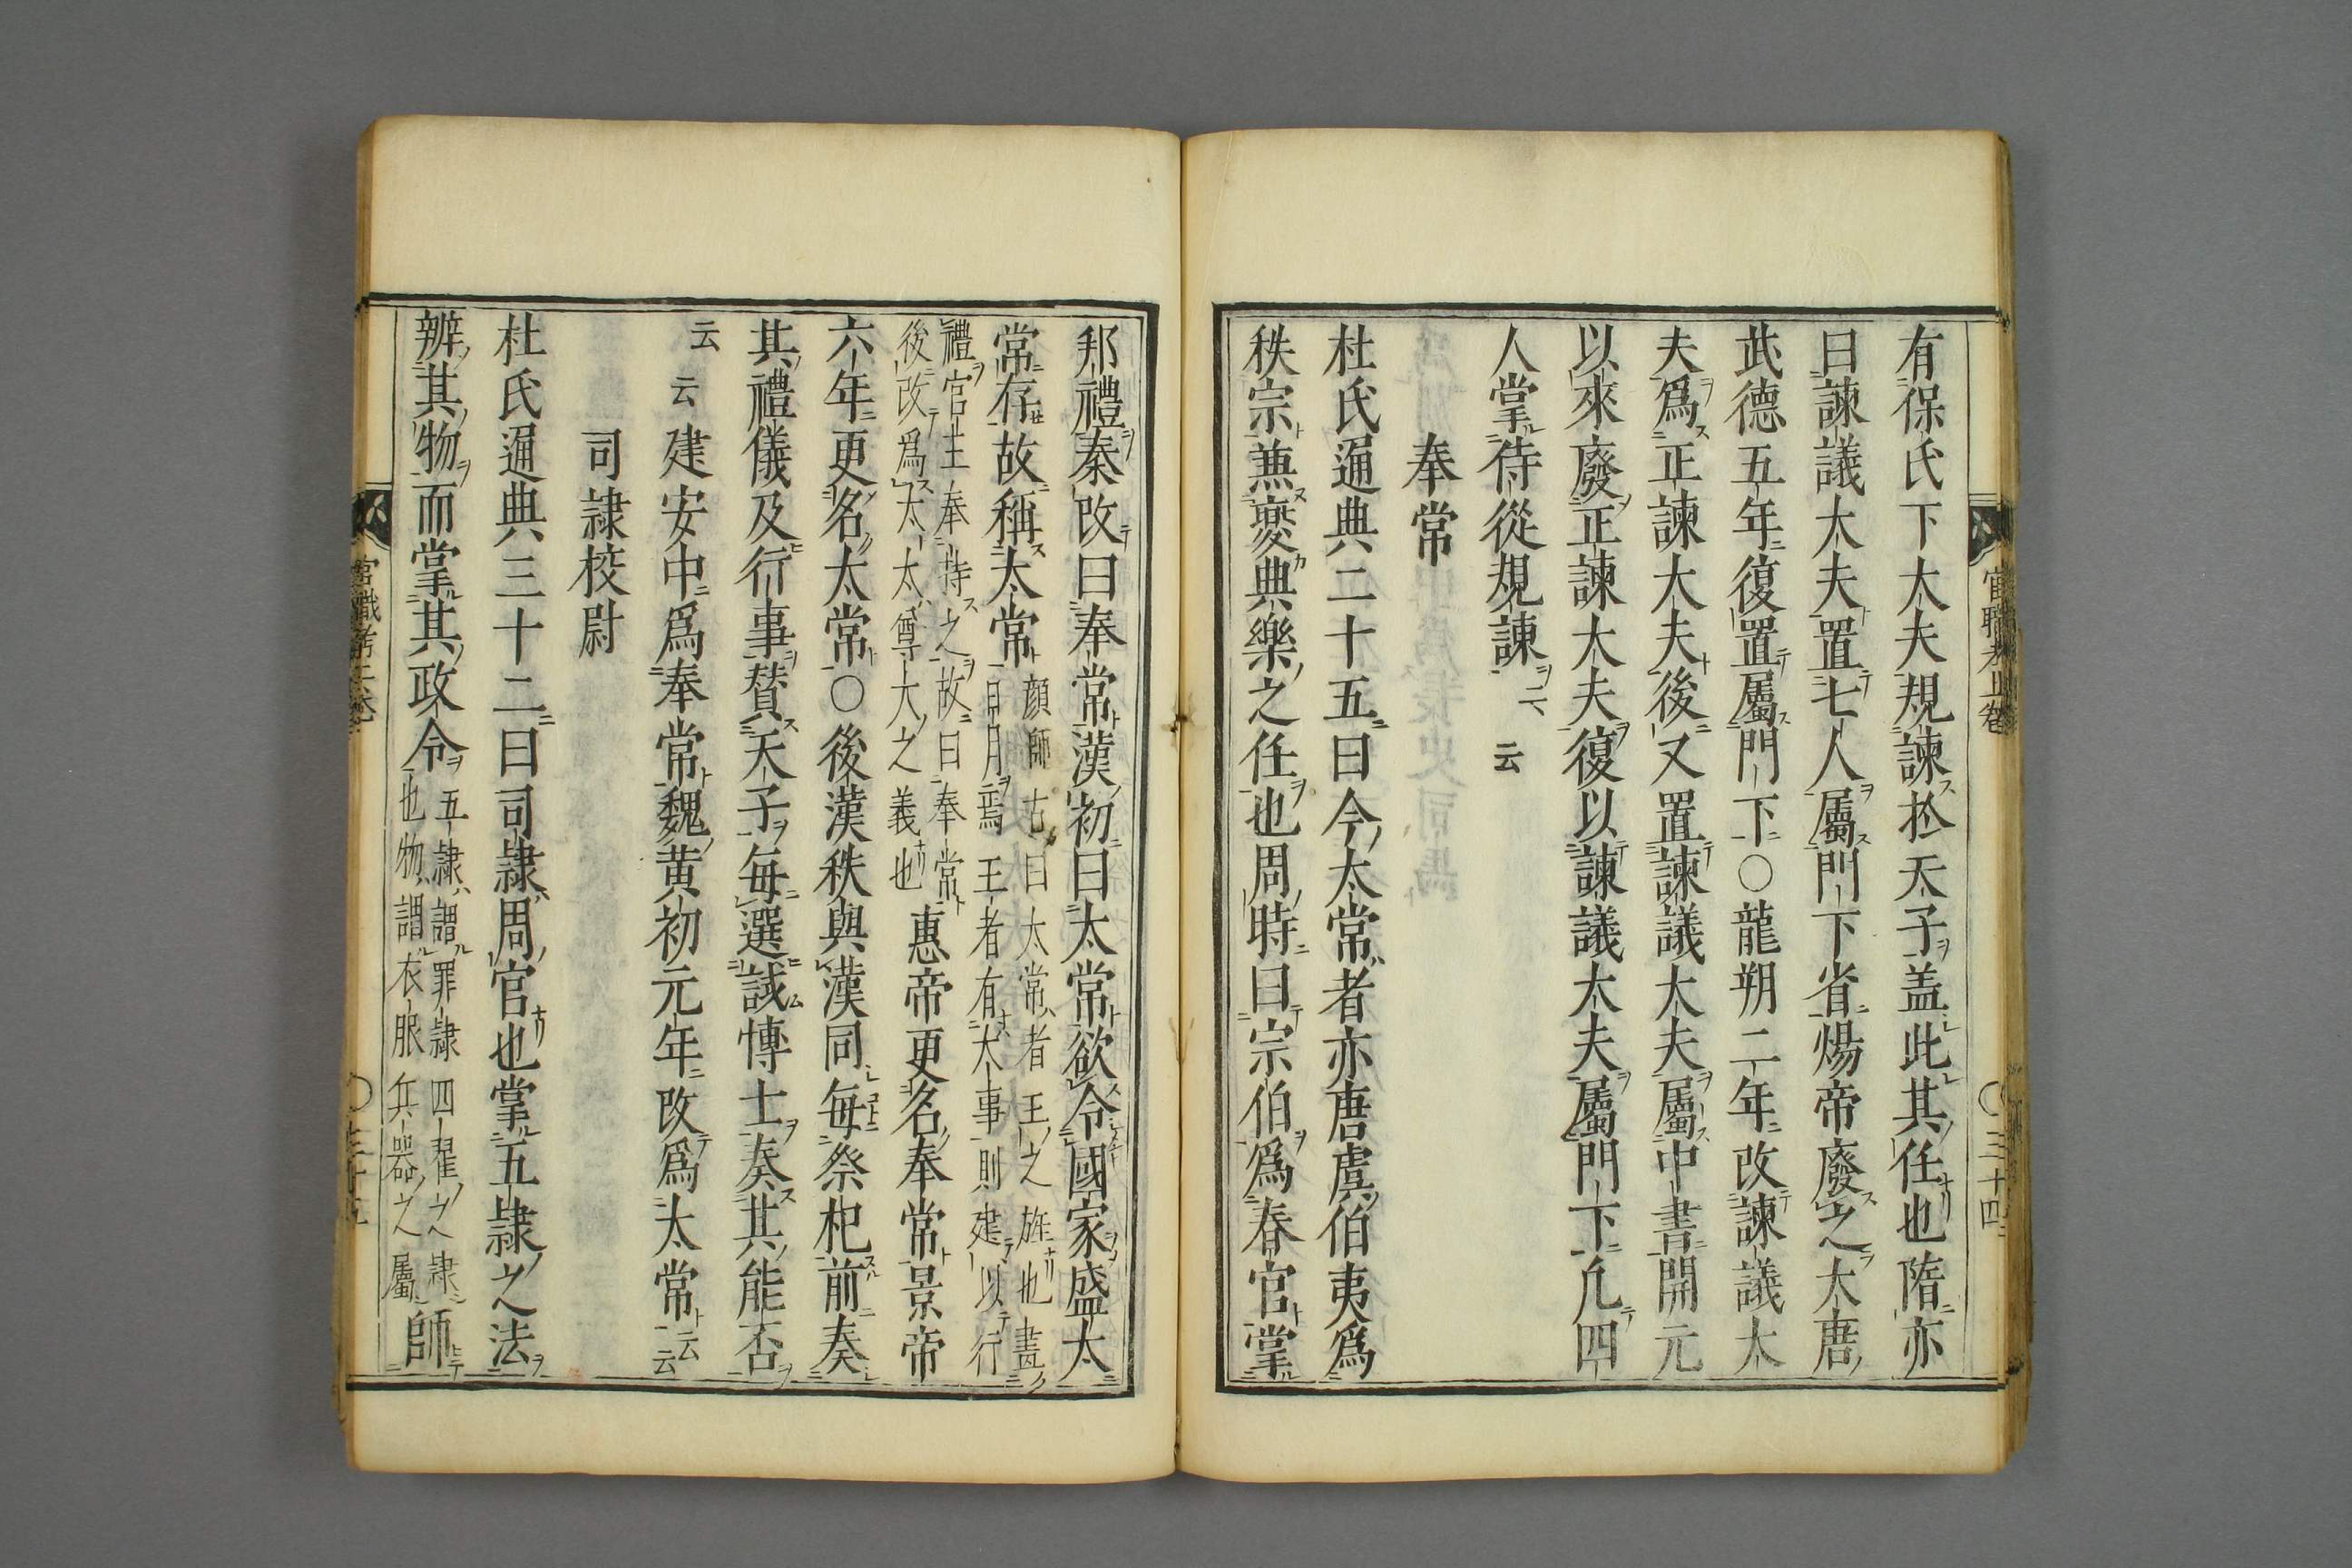 有保氏下大夫規諫於天子盖此其任也隋亦
曰諫議大夫置七人屬門下省煬帝廢之大唐
武德五年復置屬門下○龍朔二年改諫議大
夫爲正諫大夫後又置諫議大夫屬中書開元
以來廢正諫大夫復以諫議大夫屬門下凢四
人掌侍從規諫云云
奉常
杜氏通典二十五曰今太常者亦唐虞伯夷爲
秩宗兼夔典樂之任也周時曰宗伯爲春官掌
官職考上卷 ○三十四
邦禮秦改曰奉常漢初曰太常欲令國家盛太
常存故稱太常 顔師古曰太常者王之旌也畫
日月焉王者有大事則建以行
禮官主奉持之故曰奉常
後改爲太太尊大之義也 惠帝更名奉常景帝
六年更名太常○後漢秩與漢同毎祭祀前奏
其禮儀及行事賛天子毎選試博士奏其能否
云云建安中爲奉常魏黄初元年改爲太常云云
司隷校尉
杜氏通典三十二曰司隷周官也掌五隷之法
辨其物而掌其政令 五隷謂罪隷四翟之隷
也物謂衣服兵器之屬 師
官職考上卷 ○三十五